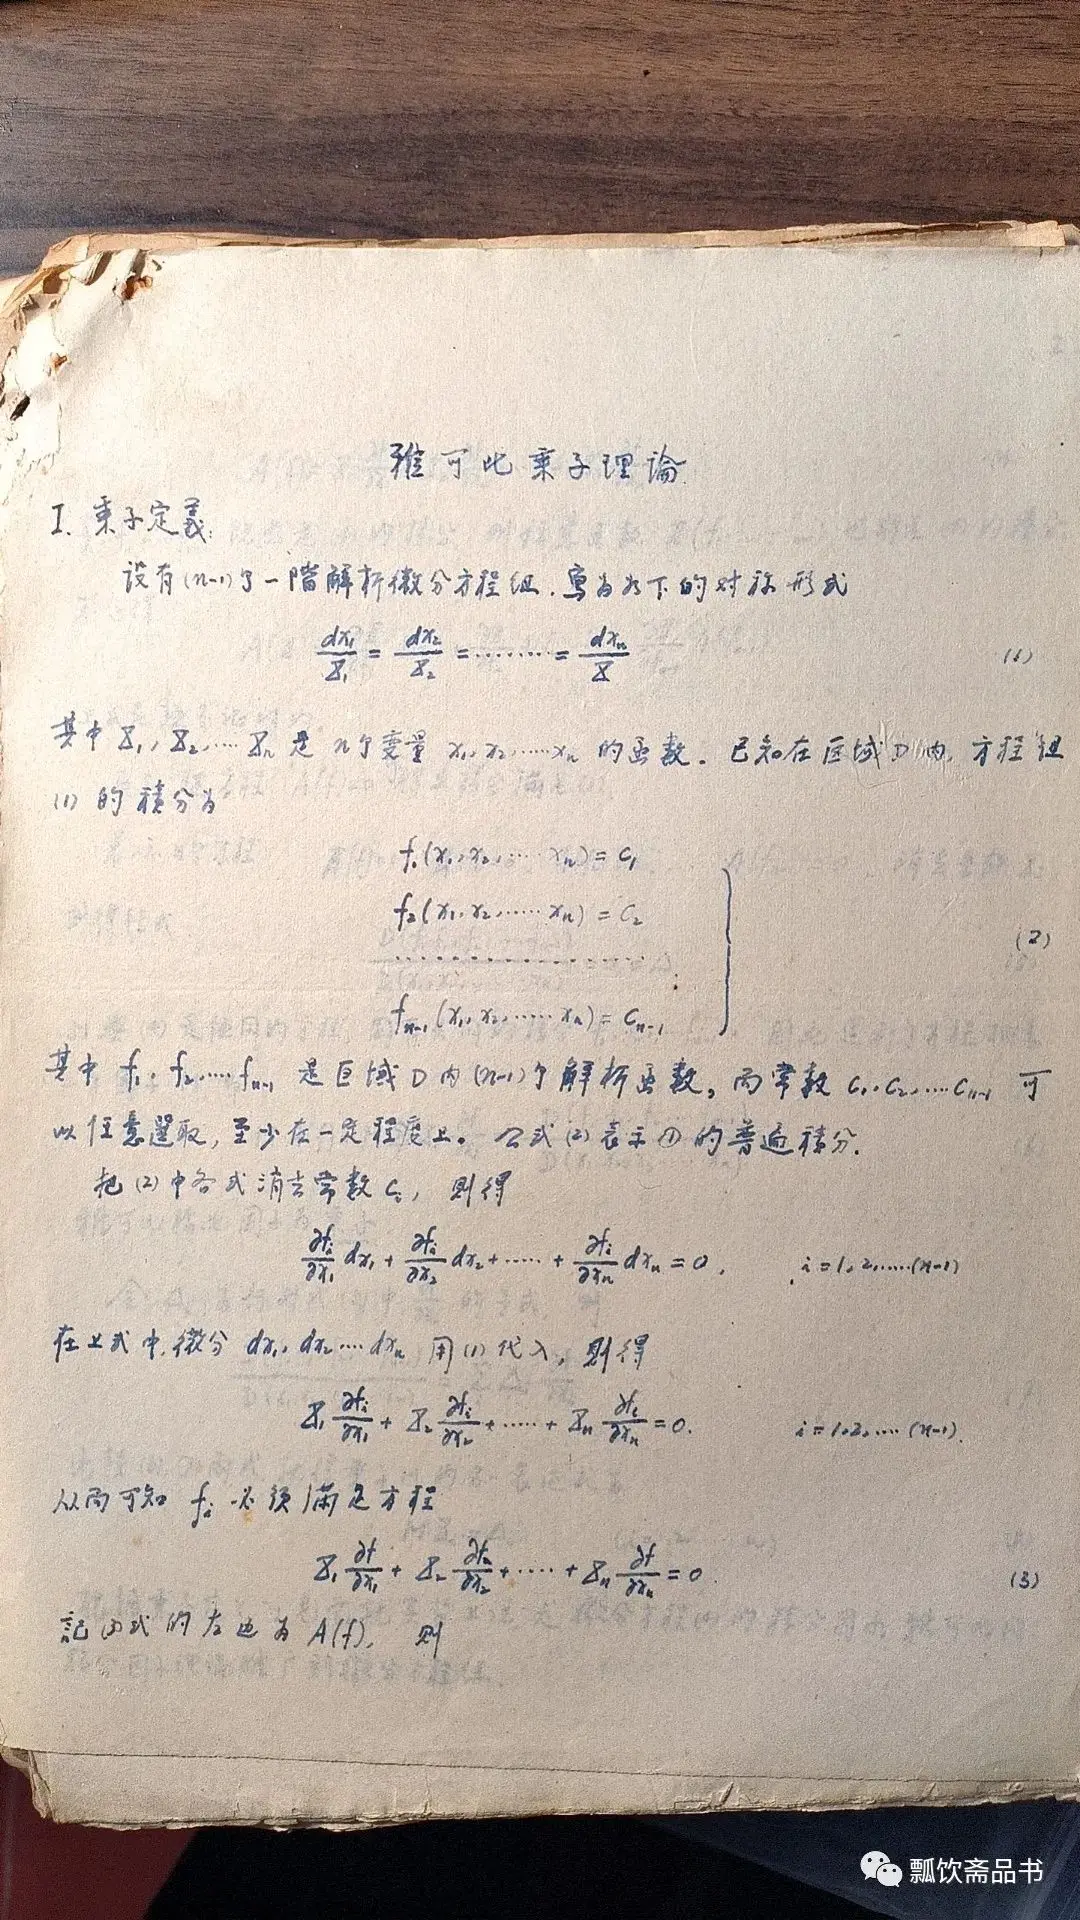 雅可比乘子理論
I. 乘子定義:
設有(n-1)个一階解析微分方程組.寫为如下的对称形式
dx₁/X₁ = dx₂/X₂ = ········· = dxₙ/X (1)
其中 X₁, X₂, ···· Xₙ 是 n个变量 x₁, x₂, ····· xₙ 的函数. 已知在区域 D 内, 方程组
(1) 的積分为
f₁(x₁, x₂, ····· xₙ) = C₁
f₂(x₁, x₂, ····· xₙ) = C₂
·················· (2)
fₙ₋₁(x₁, x₂, ····· xₙ) = Cₙ₋₁
其中 f₁, f₂, ···· fₙ₋₁ 是区域 D 内 (n-1)个解析函数, 而常数 C₁, C₂, ···· Cₙ₋₁ 可
以任意選取, 至少在一定程度上。公式(2)表示①的普遍積分.
把(2)中各式消去常数 Cᵢ, 則得
∂fᵢ/∂x₁ dx₁ + ∂fᵢ/∂x₂ dx₂ + ····· + ∂fᵢ/∂xₙ dxₙ = 0, i = 1, 2, ······(n-1)
在上式中, 微分 dx₁, dx₂ ···· dxₙ 用(1)代入, 則得
X₁ ∂fᵢ/∂x₁ + X₂ ∂fᵢ/∂x₂ + ····· + Xₙ ∂fᵢ/∂xₙ = 0. i = 1, 2, ···· (n-1).
从而可知 fᵢ 必须满足方程
X₁ ∂f/∂x₁ + X₂ ∂f/∂x₂ + ····· + Xₙ ∂f/∂xₙ = 0 (3)
記(3)式的左边为 A(f), 則
瓢饮斋品书